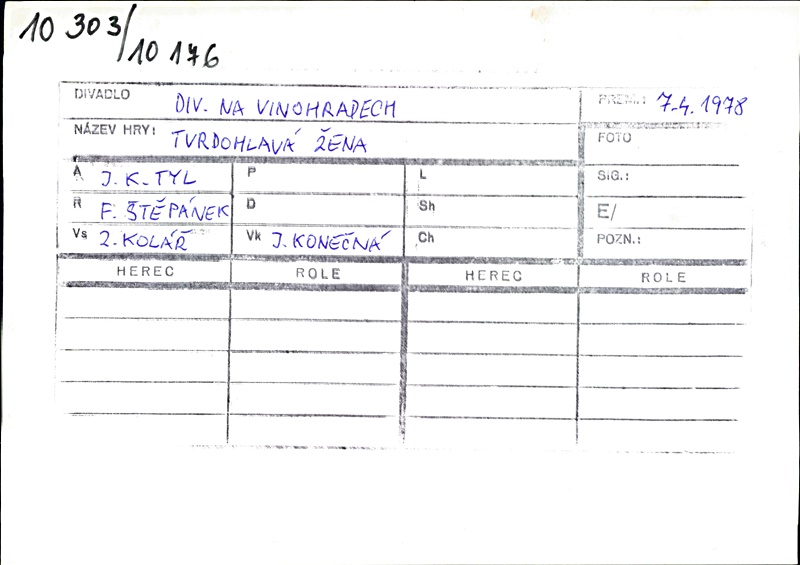 10 303/
10 176
DIVADLO DIV. NA VINOHRADECH PREM.: 7.4.1978
NÁZEV HRY: TVRDOHLAVÁ ŽENA FOTO
A J. K. TYL P L SIG.:
R F. ŠTĚPÁNEK D Sh E/
Vs Z. KOLÁŘ Vk J. KONEČNÁ Ch POZN.:
HEREC ROLE HEREC ROLE